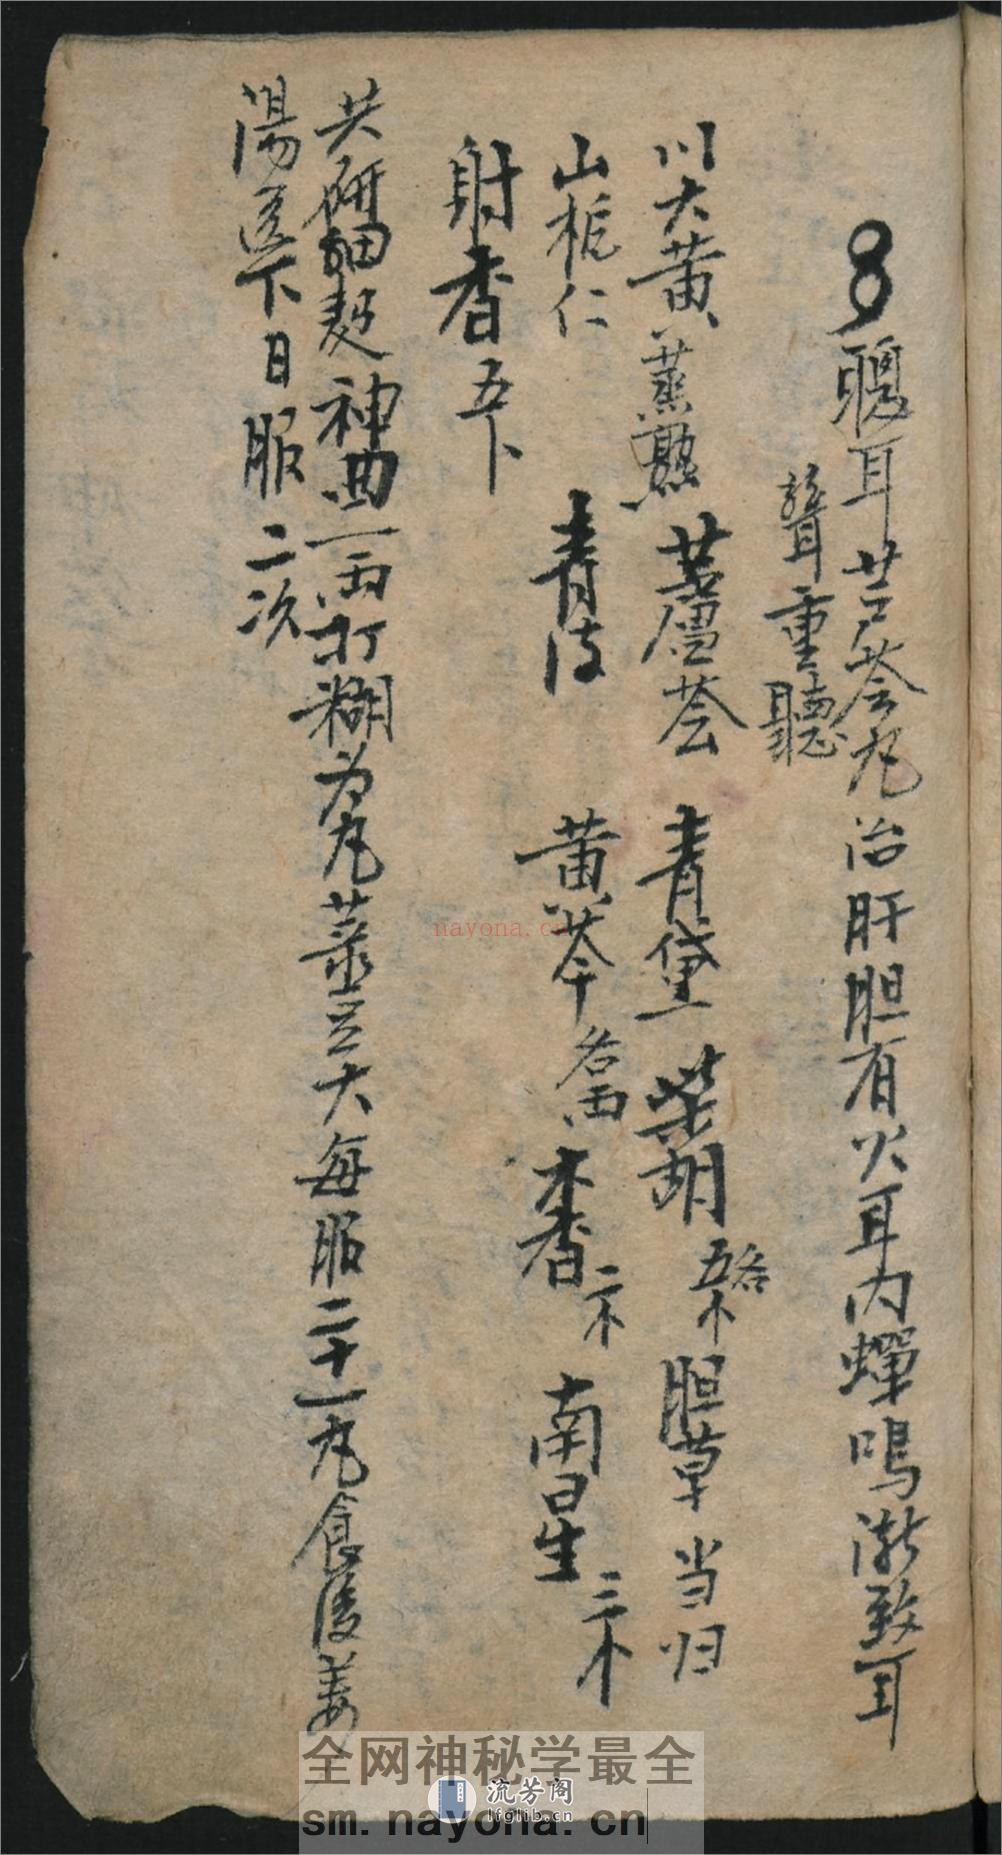 聤耳芦荟丸治肝胆有火耳内蟬鳴漸致耳
聾重聽
川大黄蒸熟蘆荟青黛柴胡各五卜胆草当归
山梔仁青皮黄芩各一両木香二卜南星三卜
射香五卜
共研細麺神曲一両打糊为丸菉豆大每服二十一丸食後姜
湯送下日服二次
nayona.cn
全网神秘学最全
流芳阁
lfglib.cn
sm.nayona.cn